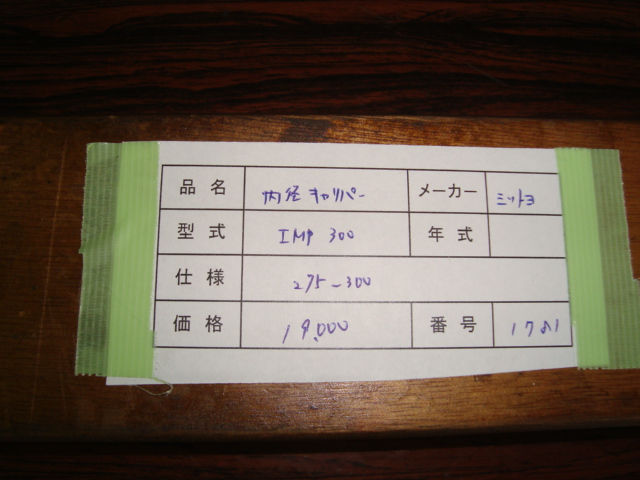 品名 内径キャリパー メーカー ミットヨ
型式 IMP 300 年式
仕様 275-300
価格 19,000 番号